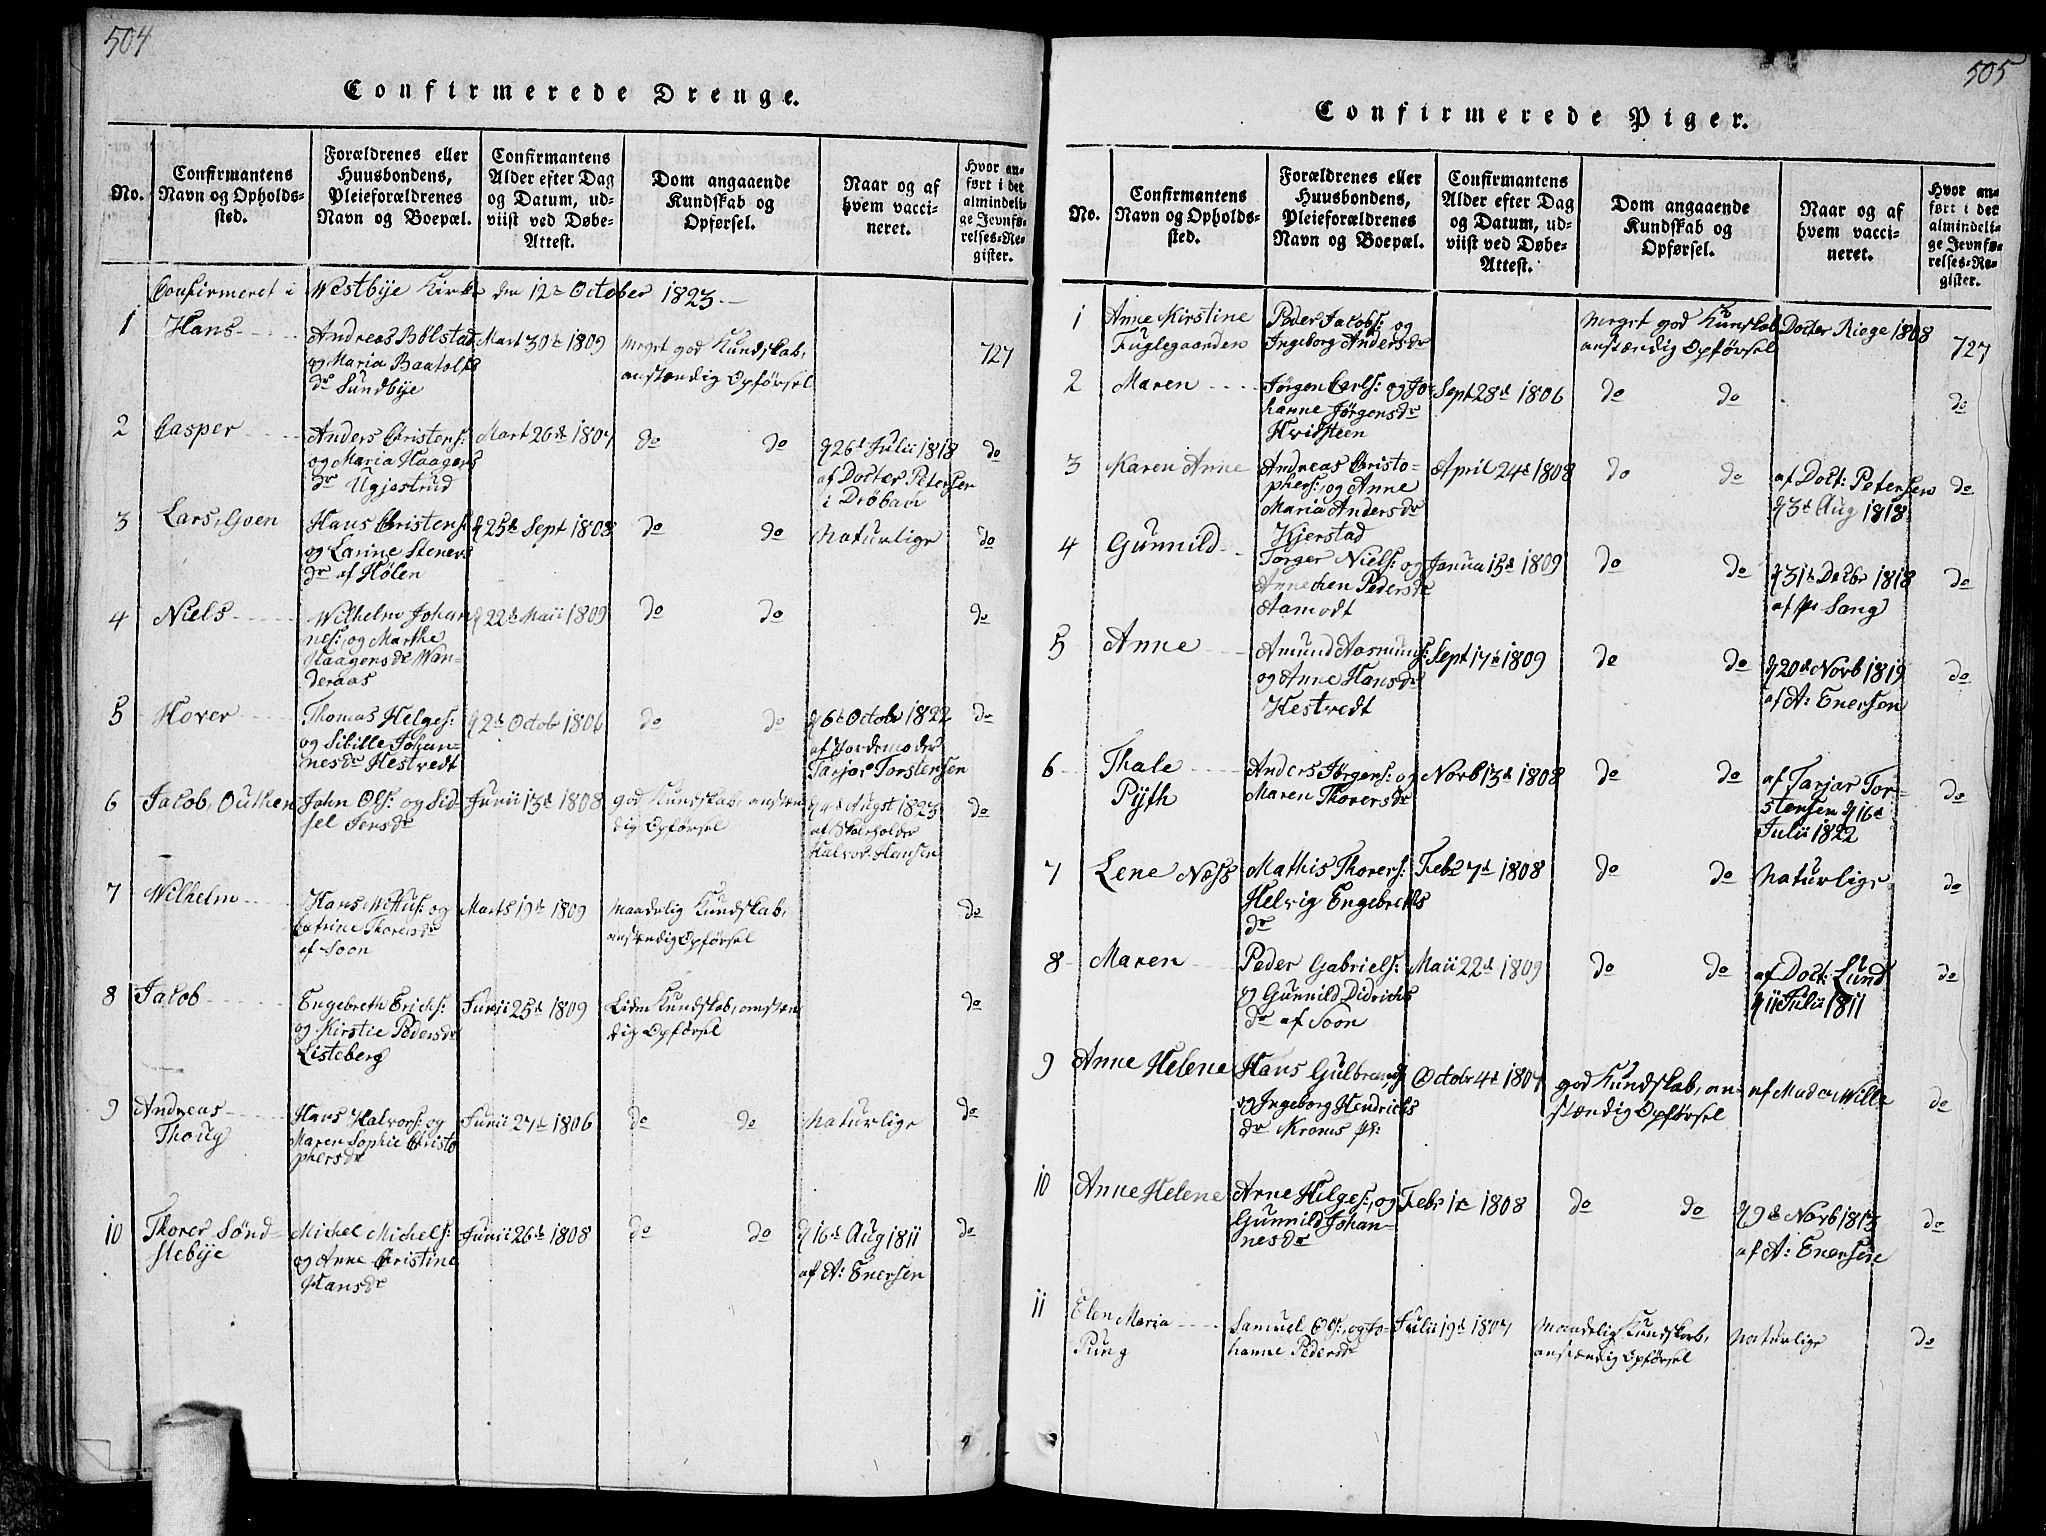 504
Confirmerede Drenge.
No.
Confirmantens Navn og Opholds-sted.
Forældrenes eller Huusbondens, Pleieforældrenes Navn og Boepæl.
Confirmantens Alder efter Dag og Datum, ud-viist ved Døbe-Attest.
Dom angaaende Kundskab og Opførsel.
Naar og af hvem vacci-neret.
Hvor an-ført i det almindeli-ge Jevnfø-relses-Re-gister.
Confirmeret i Westbye Kirke den 12te October 1823.
1
Hans
Andreas Bølstad
og Maria Baatolfs
dr Sundbye
Mart 30te 1809
Meget god Kundskab,
anstændig Opførsel
727
2
Casper
Anders Christens:
og Maria Haagens
dr Ugjestrud
Mart 26de 1807
do do
d 26d Julii 1818
af Docter Petersen
i Drøbach
do
3
Lars, Goen
Hans Christens:
og Larine Steners
dr af Hølen
d 25de Sept 1808
do do
Naturlige
do
4
Niels
Wilhelm Johan
nes: og Marthe
Haagensdr Wan-
deraas
d 22de Maii 1809
do do
do
5
Hover
Thomas Helges:
og Sibille Johan-
nesdr Hestvedt
d 2d Octob 1806
do do
d 6d Octobr 1822
af Jordemoder
Tarjer Torstensen
do
6
Jacob, Outhen
John Ols: og Sid-
sel Jensdr
Junii 13d 1808
god Kundskab, anstæn
dig Opførsel
d 4d Augst 1823
af Skoleholder
Halvor Hansen
do
7
Wilhelm
Hans Mittus: og
Catrine Thorersdr
af Soon
Marts 19d 1809
Maadelig Kundskab,
anstændig Opførsel
do
8
Jacob
Engebreth Erichs:
og Kirstie Pedersdr
Listeberg
Junii 25d 1809
Liden Kundskab, anstæn
dig Opførsel
do
9
Andreas
Thoug
Hans Halvors: og
Maren Sophie Christo
phersdr
Junii 27d 1806
do do
Naturlige
do
10
Thorer Sønd-
stebye
Michel Michels:
og Anne Christine
Hansdr
Junii 26d 1808
do do
d 16d Aug 1811
af A: Enersen
do
505
Confirmerede Piger.
No.
Confirmantens Navn og Opholds-sted.
Forældrenes eller Huusbondens, Pleieforældrenes Navn og Boepæl.
Confirmantens Alder efter Dag og Datum, ud-viist ved Døbe-Attest.
Dom angaaende Kundskab og Opførsel.
Naar og af hvem vacci-neret.
Hvor an-ført i det almindeli-ge Jevnfø-relses-Re-gister.
1
Anne Kirstine
Fuglegaarden
Peder Jacobs: og
Ingeborg Andersdr
Meget god Kunskab
anstændig Opførsel
Docter Riege 1808
727
2
Maren
Jørgen Carls: og Jo-
hanne Jørgensdr
Hvidsteen
Sept 28d 1806
do do
do
3
Karen Anne
Andreas Christo-
phers: og Anne
Maria Andersdr
Kjerstad
April 24d 1808
do do
af Doct: Petersen
d 3d Aug 1818
do
4
Gunnild
Torger Niels: og
Annechen Pedersdr
Aamodt
Janua 15d 1809
do do
d 31d Decbr 1818
af Sang
do
5
Anne
Amund Aasmunds:
og Anne Hansdr
Hestvedt
Sept 17d 1809
do do
d 20d Novb 1819
af A: Enersen
do
6
Thale
Pyth
Anders Jørgens: og
Maren Thorersdr
Novb 13d 1808
do do
af Tarjer Tor-
stensen d 16d
Julii 1822
do
7
Lene Næss
Mathis Thorers:
Helvig Engebreths
dr
Febr 7d 1808
do do
Naturlige
do
8
Maren
Peder Gabriels:
og Gunnild Didrichs
dr af Soon
Maii 22d 1809
do do
af Doct: Lund
d 11 Julii 1811
do
9
Anne Helene
Hans Gulbrands
og Ingeborg Hendrichs
dr Kroms pl:
Octobr 4d 1807
god Kundskab, an-
stændig Opførsel
af Madam Wille
do
10
Anne Helene
Arne Helges: og
Gunnild Johan-
nesdr
Febr 1d 1808
do do
d 9d Novb 1813
af A: Enersen
do
11
Elen Maria
Pung
Samuel Ols: og Jo-
hanne Pedersdr
Julii 19d 1807
Maadelig Kundskab,
anstændig Opførsel
Naturlige
do